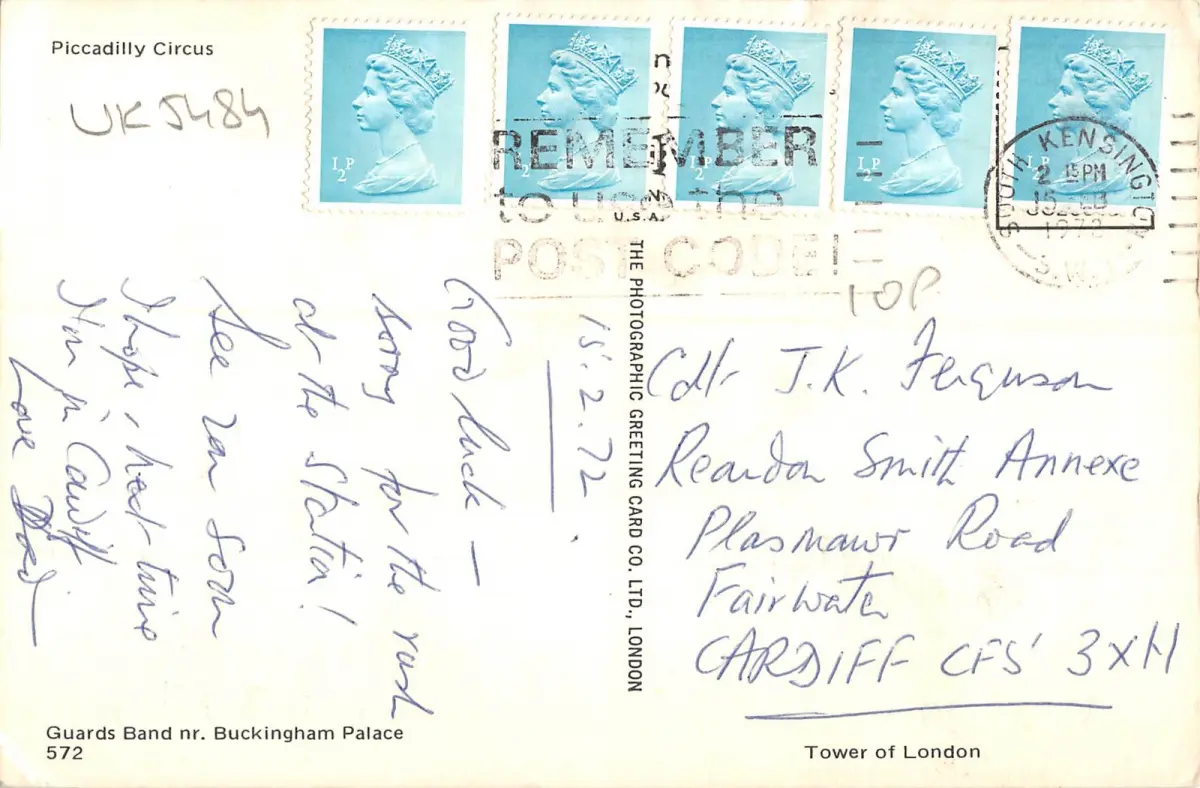 Piccadilly Circus
UK5484
½P
½P
½P
½P
½P
REMEMBER
to use the
POST CODE!
U.S.A.
SOUTH KENSINGTON
2 15PM
15 FEB
1972
S.W.7
10P
15.2.72
Good luck —
Sorry for the rush
at the station!
See you soon
I hope, next time
I'm in Cardiff
Love Dad
THE PHOTOGRAPHIC GREETING CARD CO. LTD., LONDON
Cdt J.K. Ferguson
Reardon Smith Annexe
Plasmawr Road
Fairwater
CARDIFF CF5 3XH
Guards Band nr. Buckingham Palace
572
Tower of London